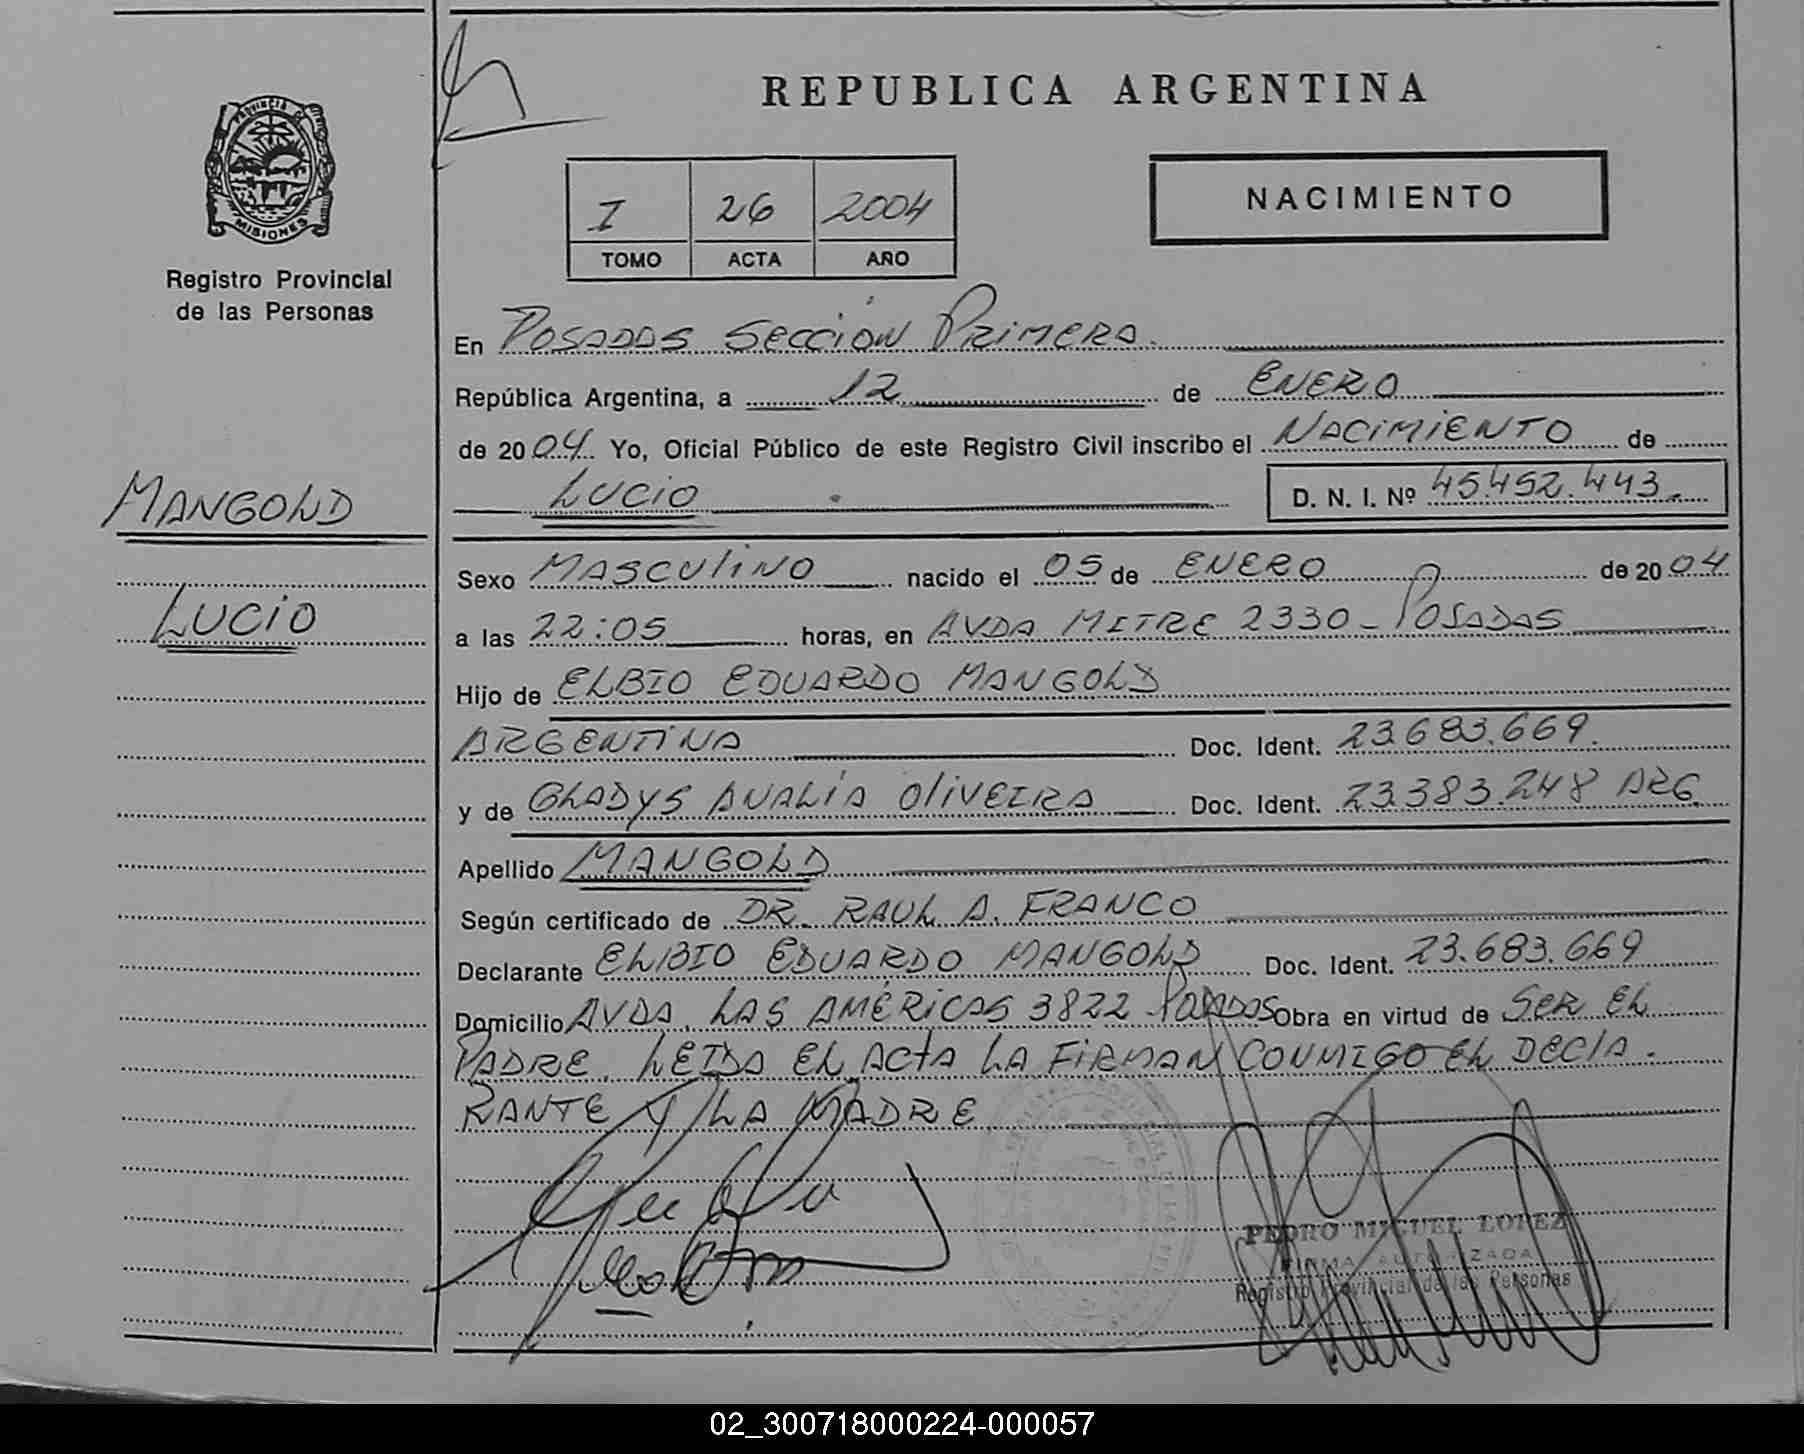 REPUBLICA ARGENTINA
PROVINCIA DE
MISIONES
Registro Provincial
de las Personas
I 26 2004
TOMO ACTA AÑO
NACIMIENTO
En POSADAS SECCIÓN PRIMERA.
República Argentina, a 12 de ENERO
de 2004 Yo, Oficial Público de este Registro Civil inscribo el NACIMIENTO de
LUCIO D. N. I. Nº 45.452.443.
MANGOLD
LUCIO
Sexo MASCULINO nacido el 05 de ENERO de 2004
a las 22:05 horas, en AVDA MITRE 2330 - POSADAS
Hijo de ELBIO EDUARDO MANGOLD
ARGENTINA Doc. Ident. 23.683.669.
y de GLADYS ANALÍA OLIVEIRA Doc. Ident. 23.383.248 ARG.
Apellido MANGOLD
Según certificado de DR. RAUL A. FRANCO
Declarante ELBIO EDUARDO MANGOLD Doc. Ident. 23.683.669
Domicilio AVDA. LAS AMÉRICAS 3822 POSADAS Obra en virtud de SER EL
PADRE. LEIDA EL ACTA LA FIRMAN CONMIGO EL DECLA-
RANTE Y LA MADRE
PEDRO MIGUEL LOPEZ
FIRMA AUTORIZADA
Registro Provincial de las Personas
02_300718000224-000057